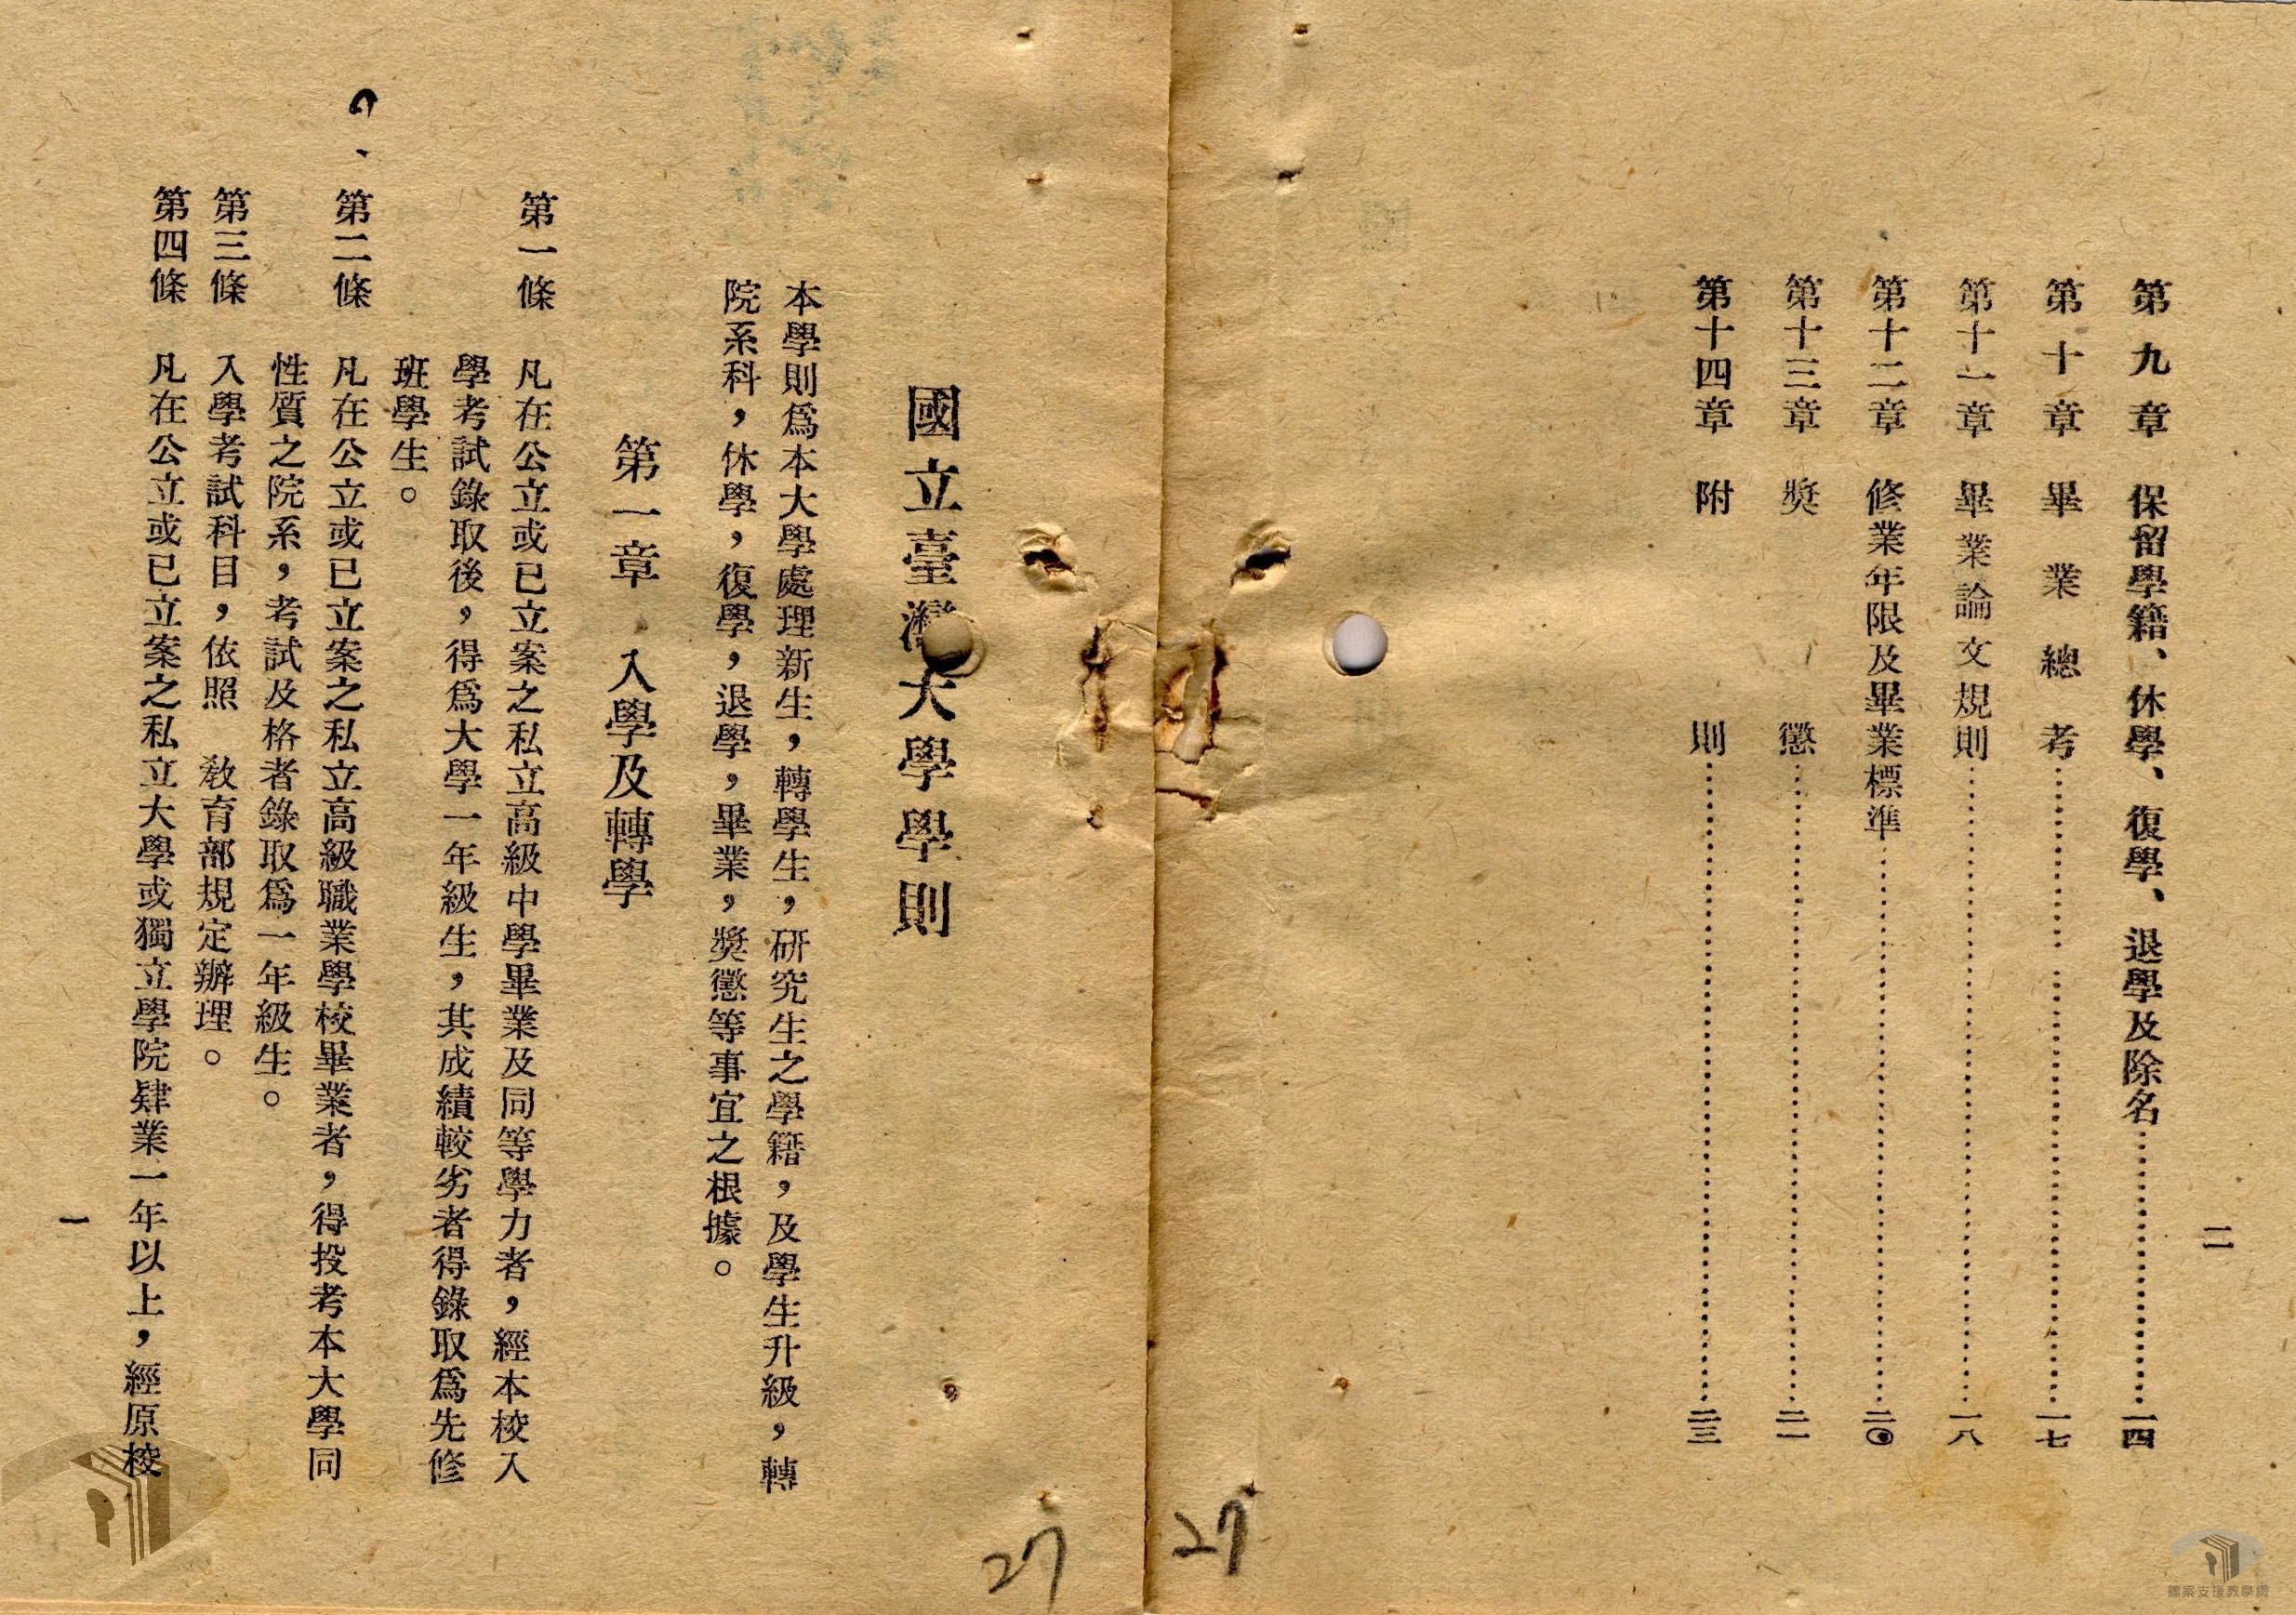 二
第九章 保留學籍、休學、復學、退學及除名…………一四
第十章 畢業總考…………一七
第十一章 畢業論文規則…………一八
第十二章 修業年限及畢業標準…………二〇
第十三章 獎懲…………二一
第十四章 附則…………二三
27
國立臺灣大學學則
本學則爲本大學處理新生，轉學生，研究生之學籍，及學生升級，轉
院系科，休學，復學，退學，畢業，獎懲等事宜之根據。
第一章 入學及轉學
第一條 凡在公立或已立案之私立高級中學畢業及同等學力者，經本校入
學考試錄取後，得爲大學一年級生，其成績較劣者得錄取爲先修
班學生。
第二條 凡在公立或已立案之私立高級職業學校畢業者，得投考本大學同
性質之院系，考試及格者錄取爲一年級生。
第三條 入學考試科目，依照 教育部規定辦理。
第四條 凡在公立或已立案之私立大學或獨立學院肄業一年以上，經原校
一
27
檔案支援教學網